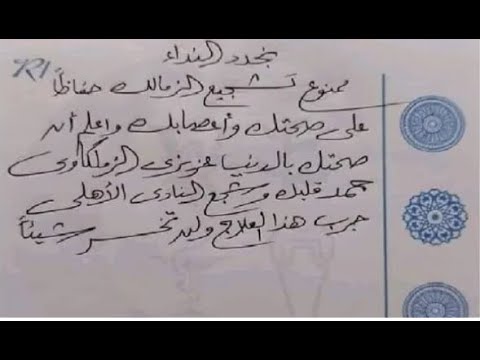 R/
نجدد النداء
ممنوع تشجيع الزمالك حفاظاً
على صحتك وأعصابك واعلم أن
صحتك بالدنيا عزيزي الزملكاوى
جمد قلبك وشجع النادى الأهلى
جرب هذا العلاج ولن تخسر شيئاً